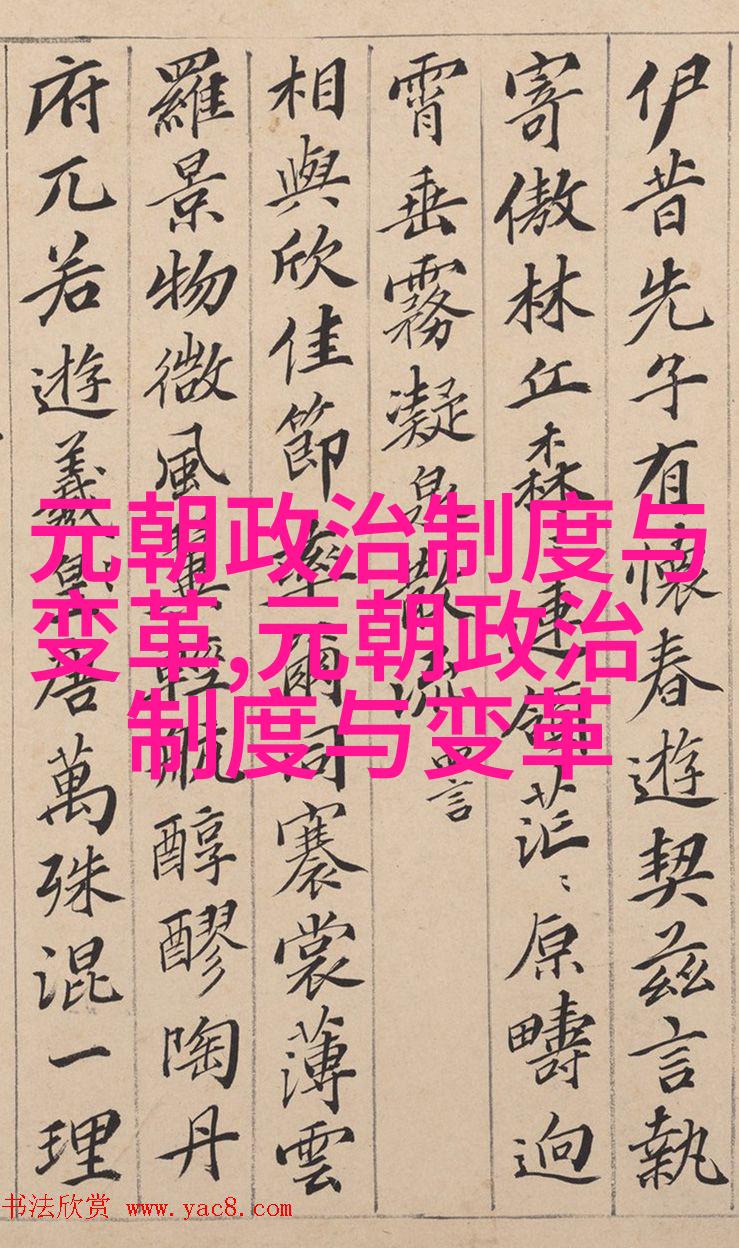 伊昔先子有懷春遊契茲言執
寄傲林丘森〻連領茫〻原疇迥
霄垂霧凝泉散流 四言
相與欣佳節率爾同褰裳薄雲
羅景物微風翼輕航醇醪陶丹
府兀若遊羲皇唐萬殊混一理
元朝政治制度与
变革,元朝政治
制度与变革
书法欣赏 www.yac8.com